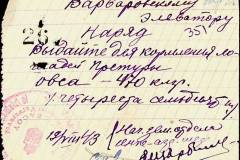 Варваровскому
Элеватору
Наряд
351
Выдайте для кормления ло-
шадей Претуры
овса — 470 клгр.
/четыреста семьдесят/
19/VIII 43
Нач. земотдела